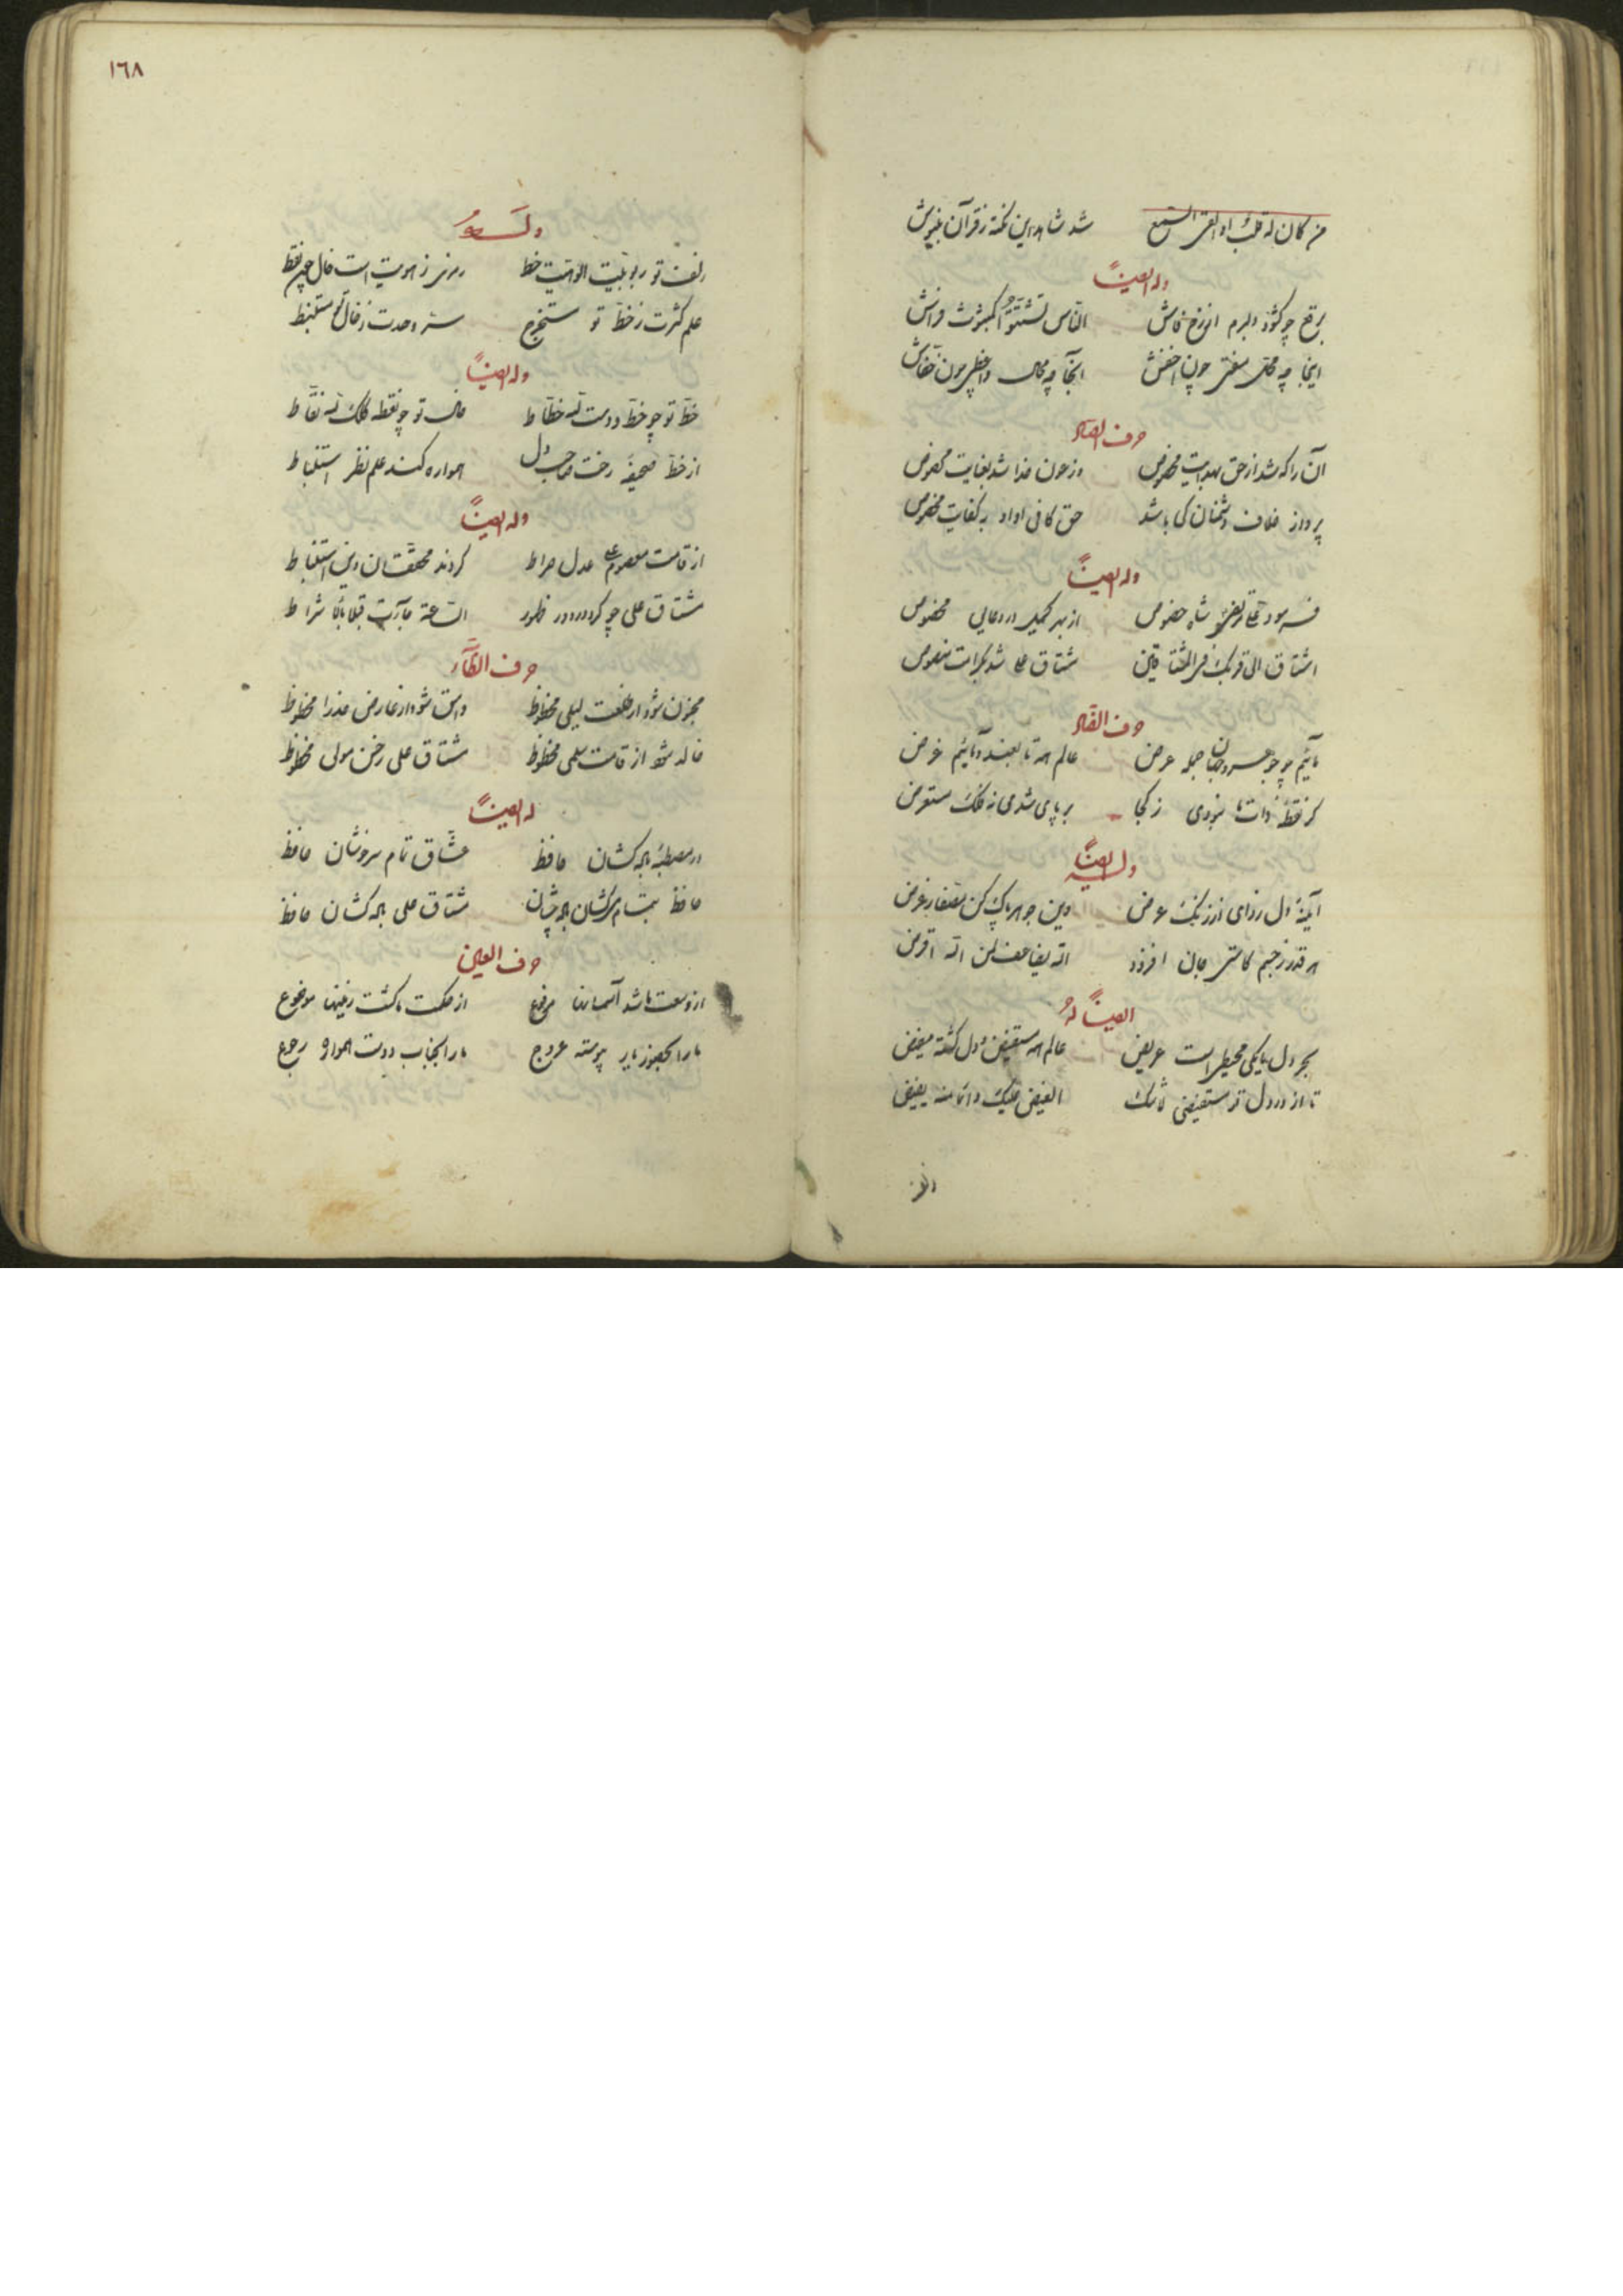 من كان له قلب او القى السمع شد شاهد این نکته ز قرآن بنیوش
وله ایضاً
برقع چو کشود دلبرم از رخ فاش الناس تشتتوا کمبثوث فراش
اینجا چه محل مفتی چون اخفش آنجا چه مجال واعظ چون خفاش
حرف الصاد
آن را که شد از حق بهدایت مخصوص وز عون خدا شد بعنایت مخصوص
پرداز خلاف دشمنان کی باشد حق کافی او او به کفایت مخصوص
وله ایضاً
فرمود شاه خصوص از بهر کمیل در دعایی مخصوص
اشتاق الی قربک فی المشتاقین مشتاق علی شد بکرامت منصوص
حرف الضاد
مائیم چو جوهر و جهان جمله عرض عالم همه تابعند و مائیم غرض
گر نقطه ذات ما نبودی ز کجا بر پای شدی نه فلک مستعرض
وله ایضاً
آینه دل زدای از زنگ عرض وین جوهر پاک کن مصفا ز غرض
هر قدر ز جسم کاستی جان افزود الله یضاعف لمن الله اقرض
ایضاً له
بحر دل ما یکی محیط است عریض عالم همه مستفیض و دل گشته مفیض
تا از در دل تو مستفیضی ما شک الفیض علیک دائما منه یفیض
١٦٨
وله
زلف تو ربوبیت الوهیت خط رمزی ز هویت است خال چو نقط
علم کثرت ز خط تو مستخرج سر وحدت ز خال تو مستنبط
وله ایضاً
خط تو چو خط دوست نه خطاط خال تو چو نقطه فلک نه نقاط
از خط صحیفه رخت صاحب دل همواره کند علم نظر استنباط
وله ایضاً
از قامت معصوم عدل صراط کردند محققان دین استنباط
مشتاق علی چو کرد در دور ظهور الساعة جاءت قبلا اشراط
حرف الظاء
مجنون شود از طلعت لیلی محظوظ وامق شود از عارض عذرا محظوظ
خالد شد از قامت سلمی محظوظ مشتاق علی ز حسن مولی محظوظ
له ایضاً
در مصطبه باده کشان حافظ عشاق تمام سرخوشان حافظ
حافظ مشتاق علی باده کشان حافظ
حرف العین
از وسعت ما شد آسمانها مرفوع از حکمت ما گشت زمینها موضوع
ما را بحضور یار پیوسته عروج ما را بجناب دوست همواره رجوع